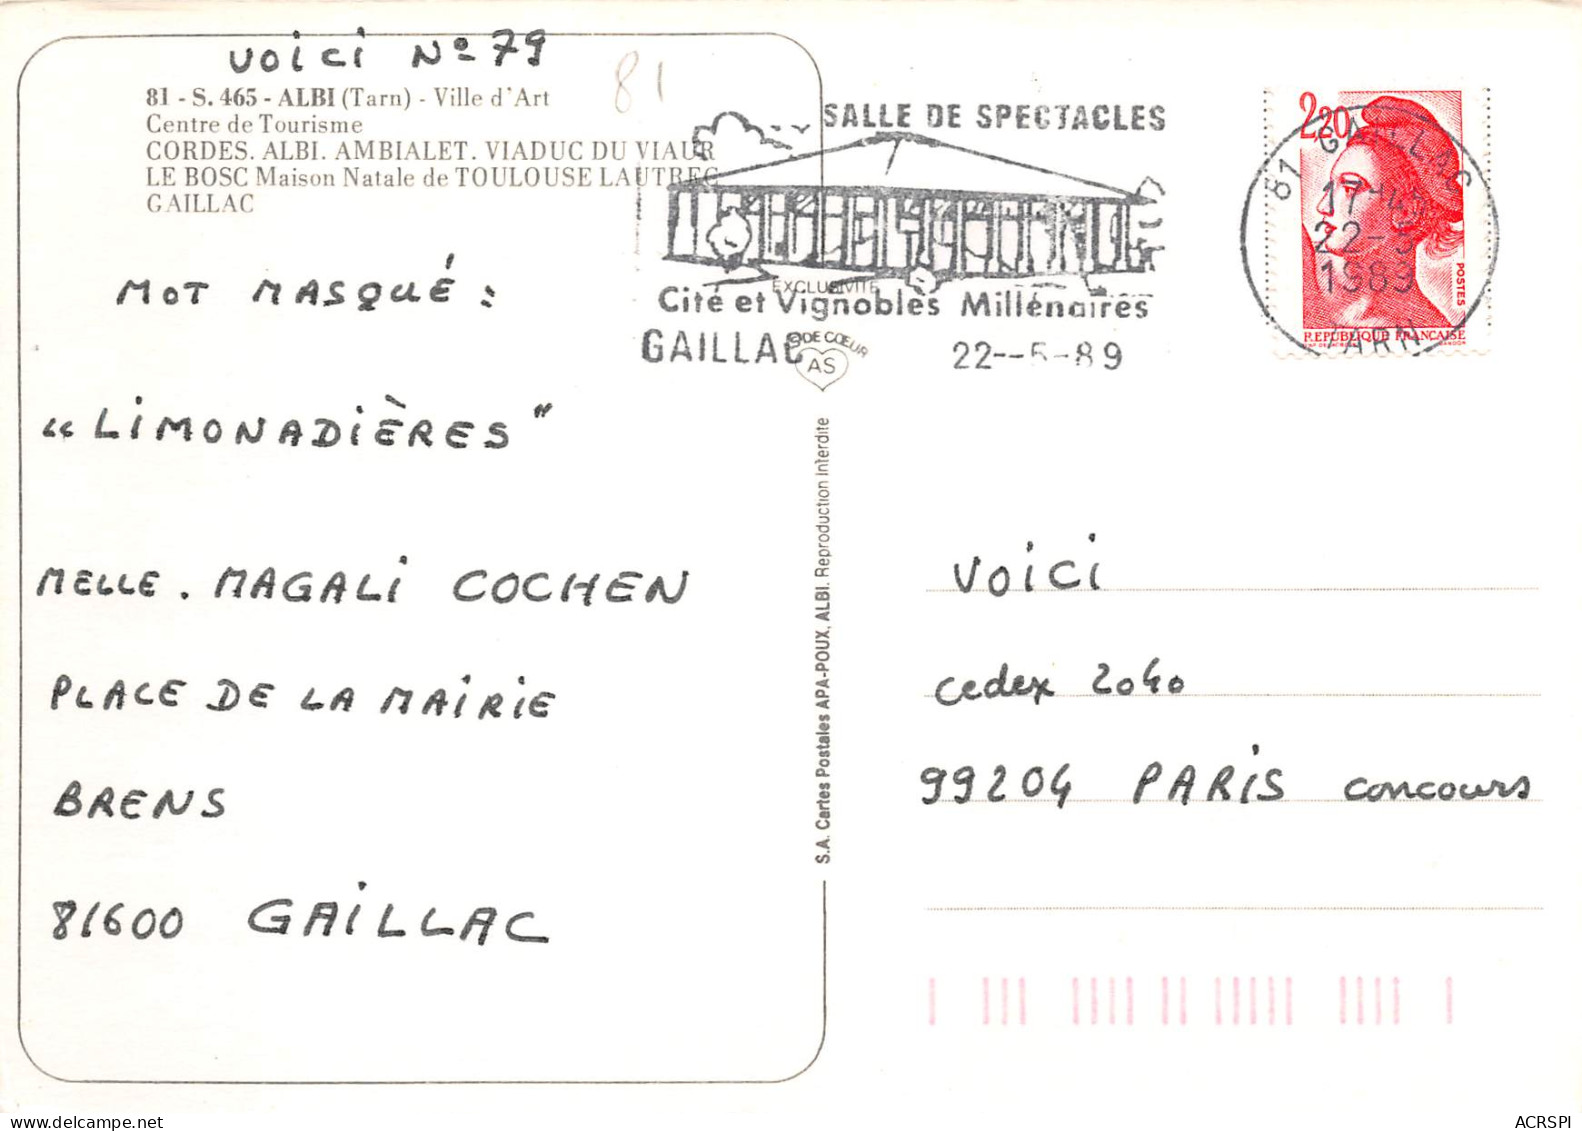 VOICI N° 79
81
81 - S. 465 - ALBI (Tarn) - Ville d'Art
Centre de Tourisme
CORDES. ALBI. AMBIALET. VIADUC DU VIAUR
LE BOSC Maison Natale de TOULOUSE LAUTREC
GAILLAC
MOT MASQUÉ :
"LIMONADIÈRES"
MELLE. MAGALI COCHEN
PLACE DE LA MAIRIE
BRENS
81600 GAILLAC
SALLE DE SPECTACLES
EXCLUSIVITÉ
Cité et Vignobles Millénaires
GAILLAC 22--5-89
DE CŒUR
AS
S.A. Cartes Postales APA-POUX, ALBI. Reproduction Interdite
2,20
POSTES
REPUBLIQUE FRANÇAISE
81 GAILLAC
17H45
22-5
1989
TARN
VOICI
cedex 2040
99204 PARIS concours
ACRSPI